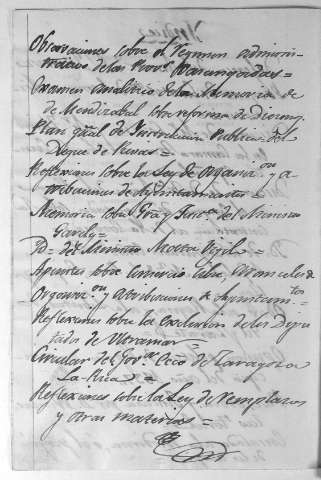 Observaciones sobre el regimen admini-
trativo de las Provs. Vascongadas=
Examen analitico de la Memoria de
de Mendizabal sobre reforma de Diezmos
Plan gral de Instruccion Publica del
Duque de Rivas=
Reflexiones sobre la Ley de Organizon. y a
tribuciones de Ayuntamientos=
Memoria sobre Gra y Justicia del Ministro
Garely=
Id. del Ministro Moscoso
Apuntes sobre Comercio libre, Aranceles de
Organizon. y atribuciones de Ayuntamtos
Reflexiones sobre la exclusion de los Dipu
tados de Ultramar=
Circular del Gobor. Ecco de Zaragoza
La Rica=
Reflexiones sobre la Ley de reemplazos
y otras materias=